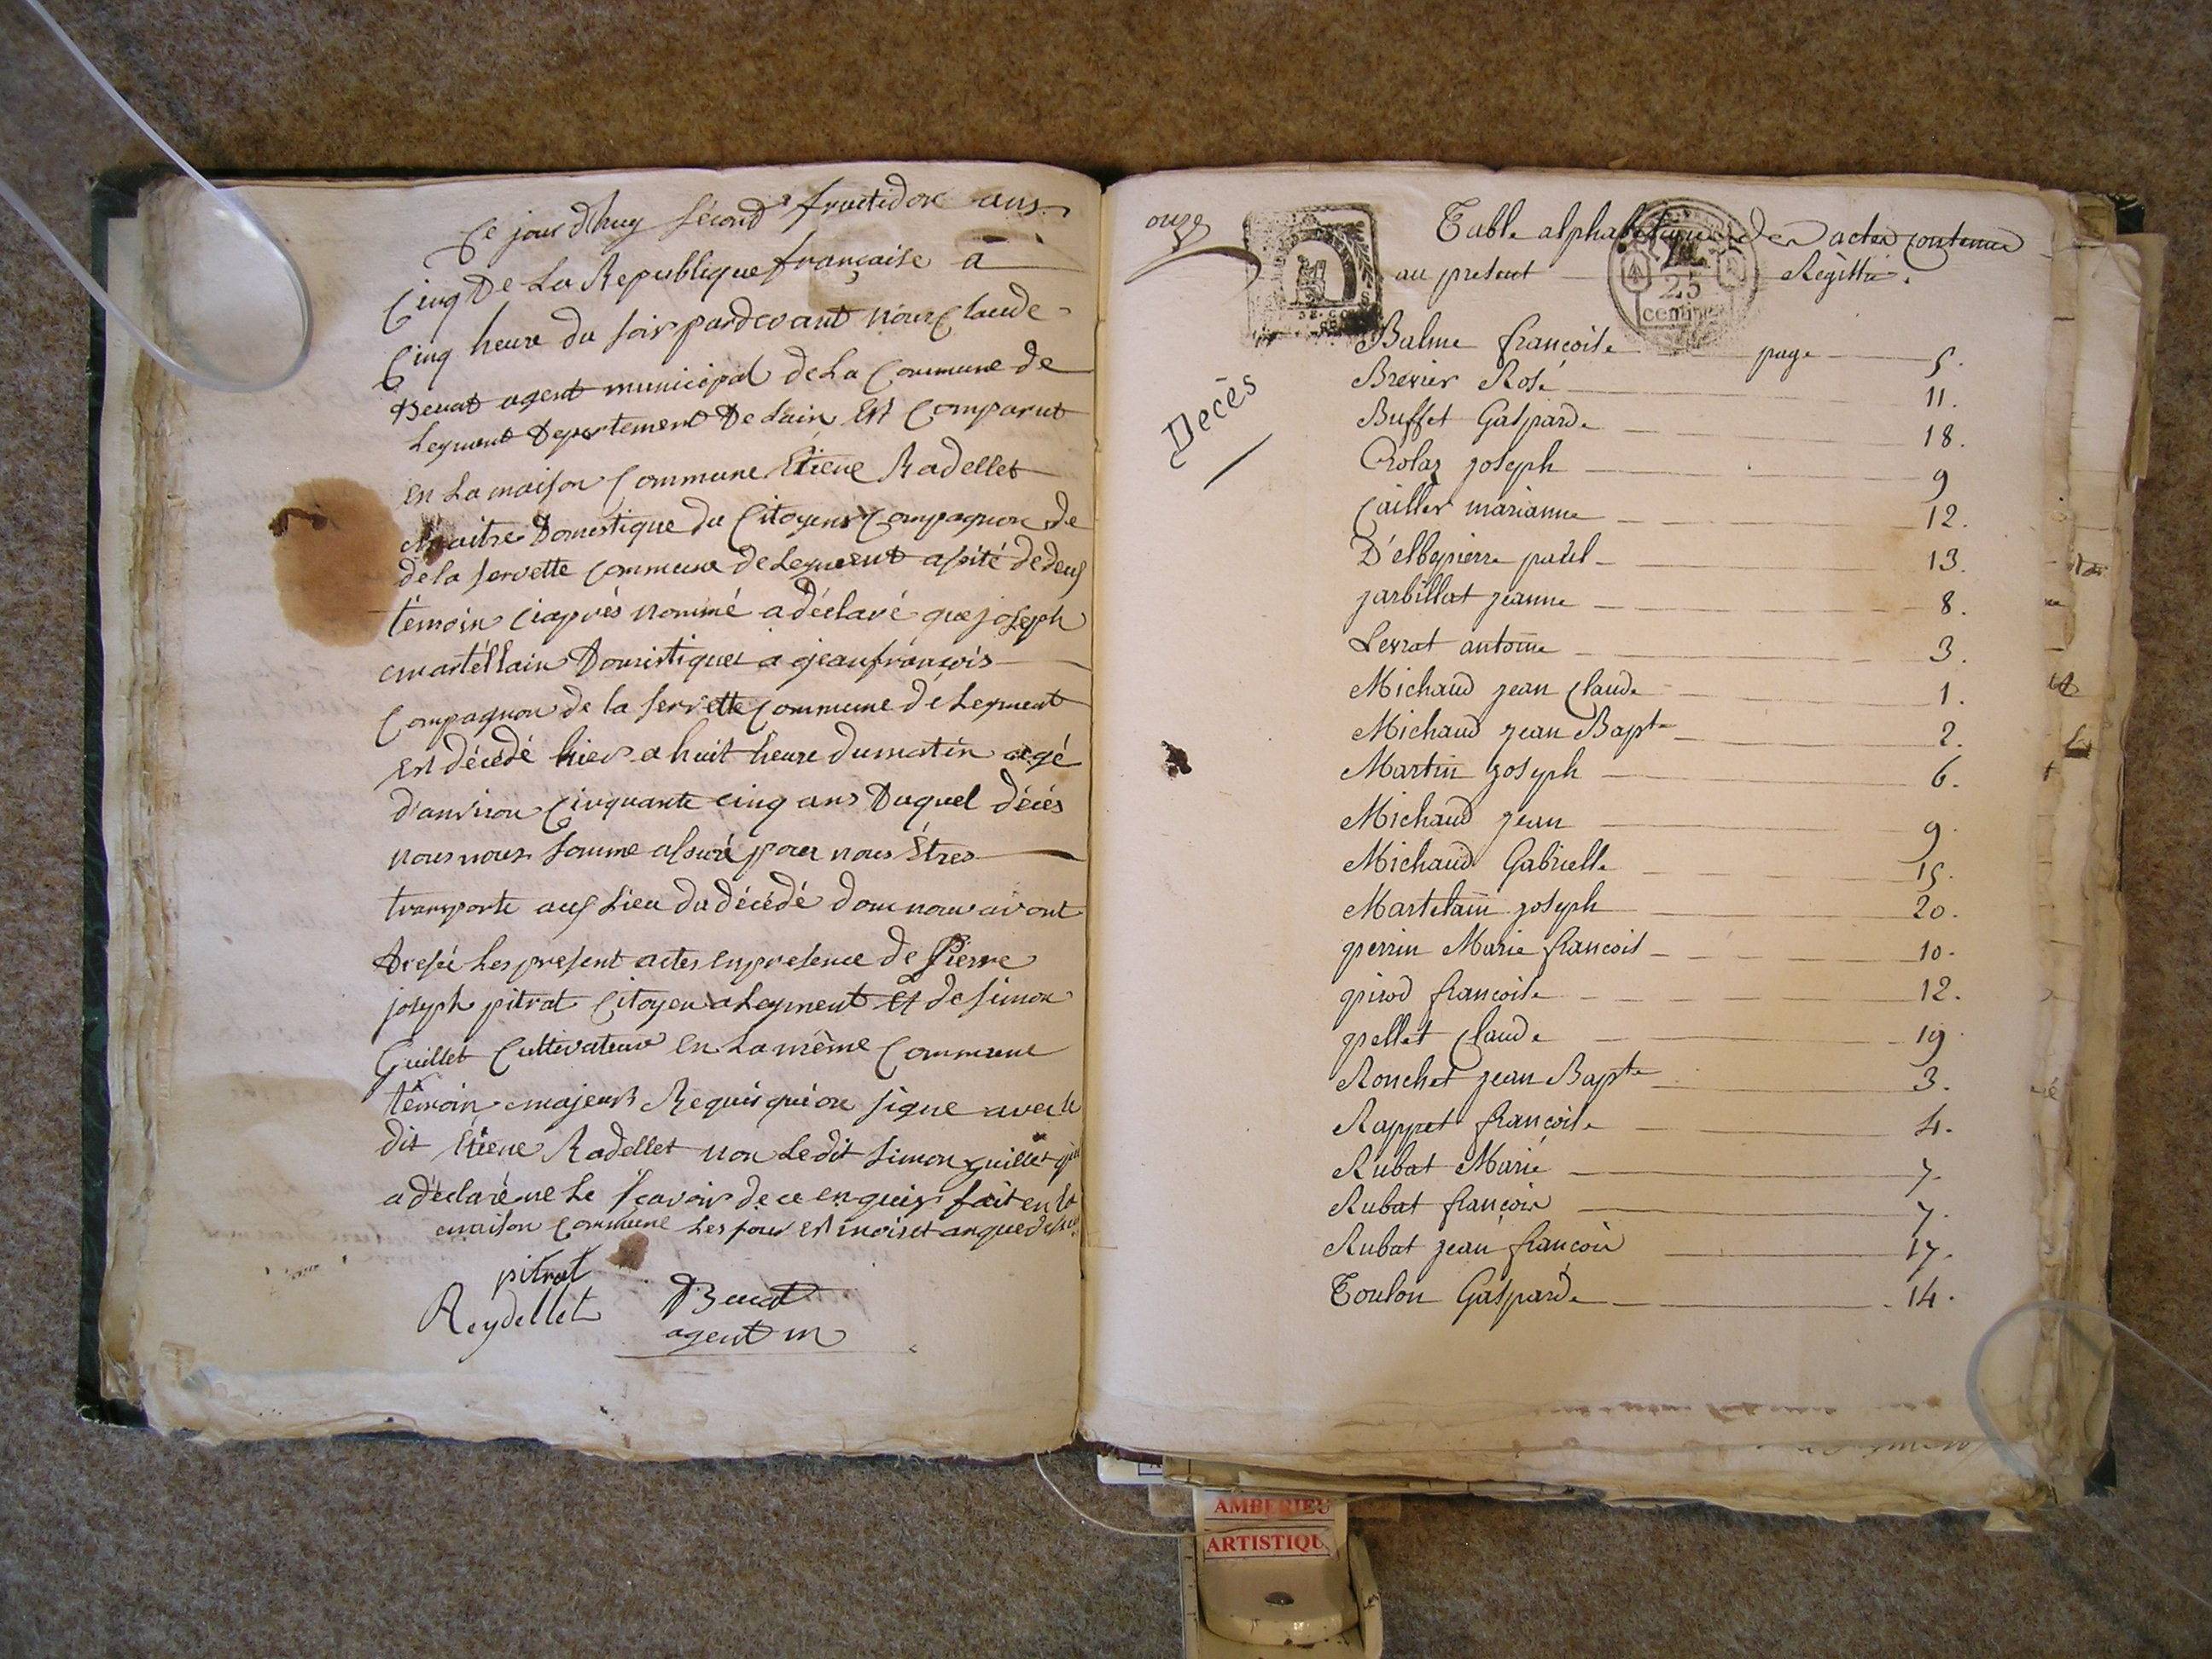 Ce jourdhuy sécond fructidor ans
Cinq De La Republique française a
Cinq heure du soir pardevant nous Claude
Benat agent municipal de La Commune de
Leyment Departement De Lain Est Comparut
En La maison Commune Etiene Radellet
maitre Domestique du Citoyens Compagnon de
de la servette Commune de Leyment assité de deus
témoin Ciaprès nommé a déclaré que joseph
martéllain Domistiques a jeanfrançois
Compagnon de la servette Commune de Leyment
Est décédé hier a huit heure du matin agé
d'anviron Cinquante cinq ans Duquel décés
nous nous somme assuré pour nous Étres
transporté aus Lieu du décédé donc nous avont
Dresée Les present actes en presence de Pierre
joseph pitrat Citoyen a Leyment Et de simon
Guillet Cultivateur En La même Commune
témoin majeurs Requis qui on signe avec le
dit Etiene Radellet non Le dit simon guillet qui
a déclaré ne Le sçavoir de ce enquis fait en la
maison Commune Les jour Est mois et an que dessus
pitrat
Reydellet Benat
agent m
onze
Table alphabetique des actes contenus
au present Régittre.
25
centimes
Decès
Balme francoise page 5.
Brevier Rose 11.
Buffet Gasparde 18.
Crolaz joseph 9
Cailler marianne 12.
D'elbepierre paul 13.
jarbillat jeanne 8.
Levrat antoine 3.
Michaud jean Claude 1.
Michaud jean Bapte 2.
Martin joseph 6.
Michaud jean 9.
Michaud Gabrielle 15.
Martelain joseph 20.
perrin Marie francois 10.
pirod francoise 12.
pellet Claude 19
Ronchet jean Bapte 3.
Rappet françoise 4.
Rubat Marie 7.
Rubat françois 7.
Rubat jean françois 17.
Toulon Gasparde 14.
AMBERIEU
ARTISTIQU